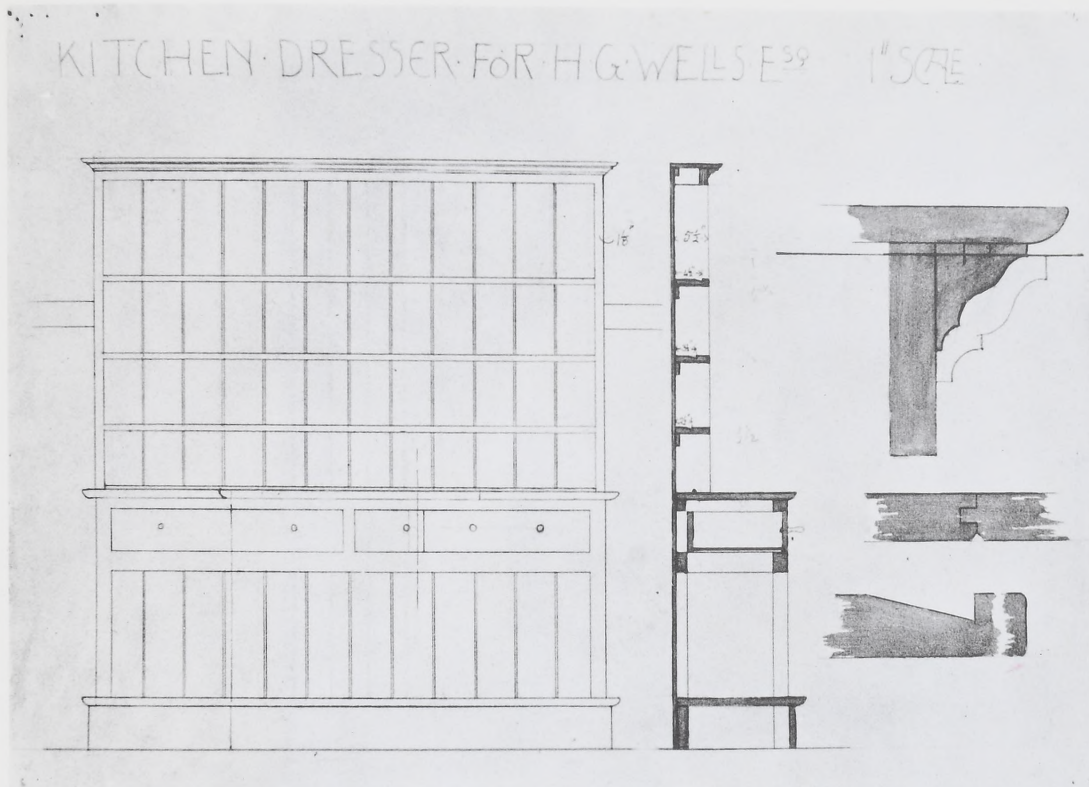 KITCHEN·DRESSER·FOR·H·G·WELLS ESQ 1" SCALE
5½"